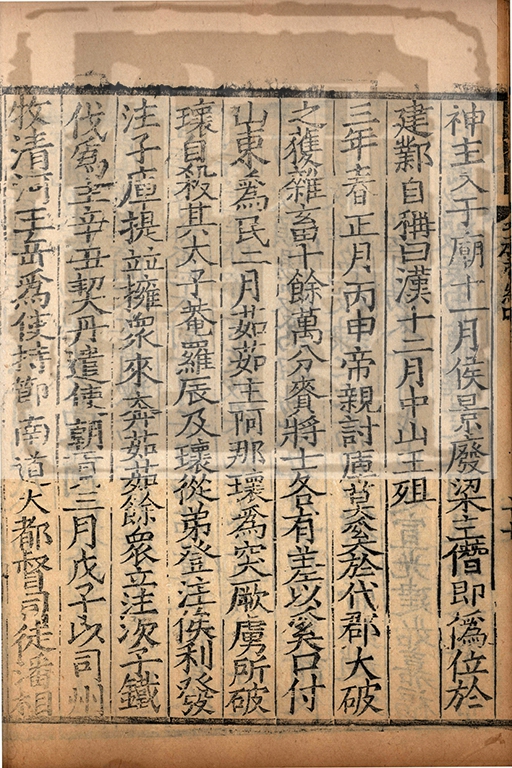 神主入于廟十一月侯景廢梁主僭即僞位於
建鄴自稱曰漢十二月中山王殂
三年春正月丙申帝親討庫莫奚於代郡大破
之獲雜畜十餘萬分賚將士各有差以奚口付
山東爲民二月茹茹主阿那瓌爲突厥虜所破
瓌自殺其太子菴羅辰及瓌從弟登注俟利發
注子庫提並擁衆來奔茹茹餘衆立注次子鐵
伐爲主辛丑契丹遣使朝貢三月戊子以司州
牧清河王岳爲使持節南道大都督司徒潘相